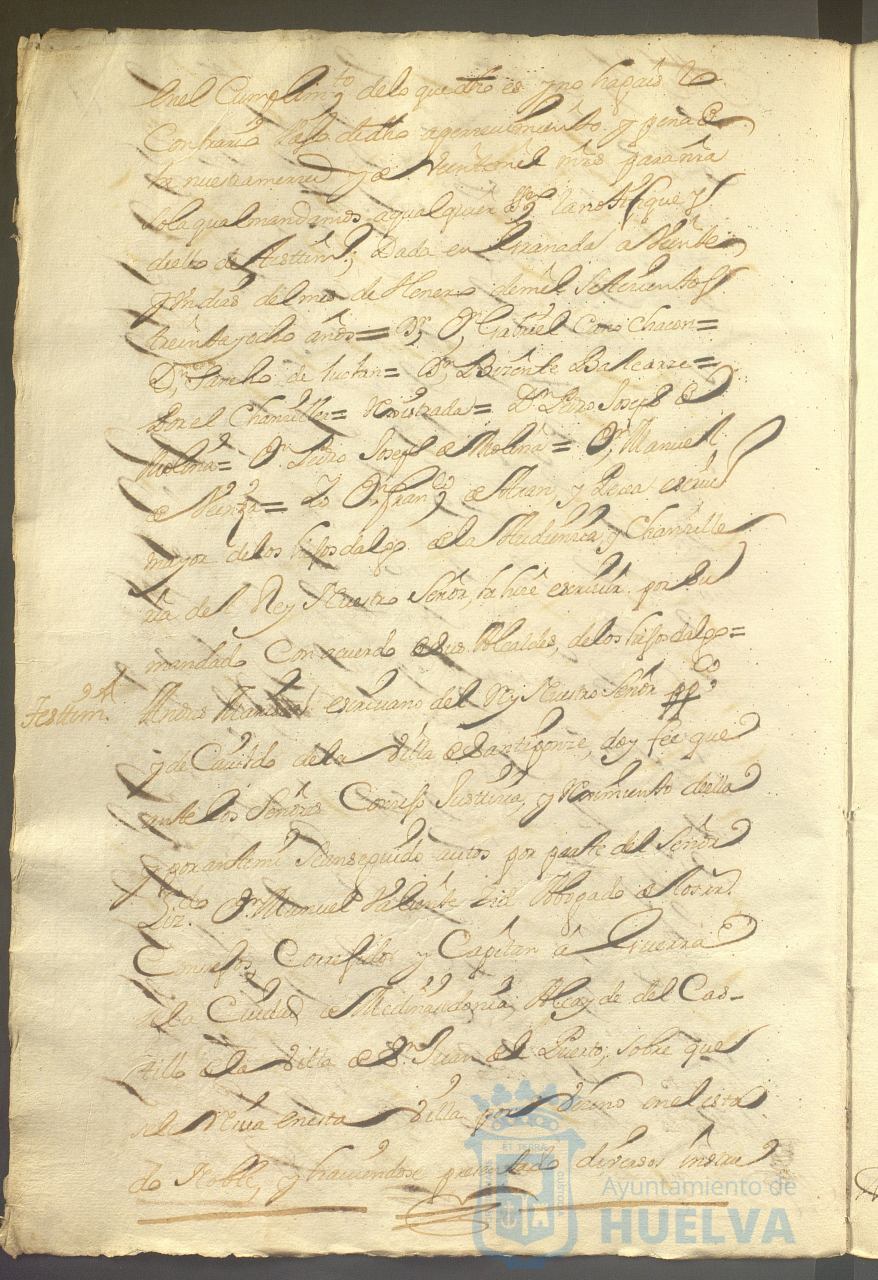 en el Cumplim.to de lo que dho es y no hagais lo
Contrario vajo de dho apercevimiento y pena de
la nuestra merced y de Veinte mil mrs para nra
sola qual mandamos a qualquier ss.no la notifique y
de ello de testtim.o; Dada en Granada a Veinte
y Un dias del mes de Henero de mil Setecientos
treinta y ocho años = D.n D.n Gabriel Cano Chacon =
D.n de = D.n Bizente =
Por el Chanziller = Rexistrada = D.n Pedro Joseph de
Molina = D.n Pedro Joseph de Molina = D.n Manuel
de = Yo D.n Fran.co de y escriv.o
mayor de los hijos dalgo de la Audiencia, y Chanzille
ria del Rey Nuestro Señor, la hice escrivir por su
mandado Con acuerdo de sus Alcaldes, de los hijos dalgo =
Testtim.o
Andres escrivano del Rey Nuestro Señor pp.co
y de Cavildo de la Villa de Santiponze, doy fée que
ante los Señores Consejo Justticia, y Reximiento de ella
y por ante mi se an seguido autos por parte del Señor
Liz.do D.n Manuel Valiente Abogado de los R.s
Consejos, Correjidor y Capitan á Guerra
de la Ciudad de Medinasidonia, Alcayde del Cas-
tillo de la Villa de S.n Juan del Puerto, sobre que
se le Reciva en esta Villa por Vezino en el esta
do Noble, y haciendose presentado diversos instru
ET TERRA
CUSTOS
Ayuntamiento de
HUELVA